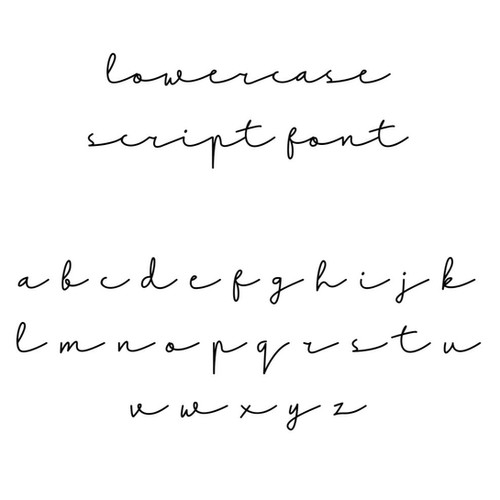 lowercase
script font
a b c d e f g h i j k
l m n o p q r s t u
v w x y z